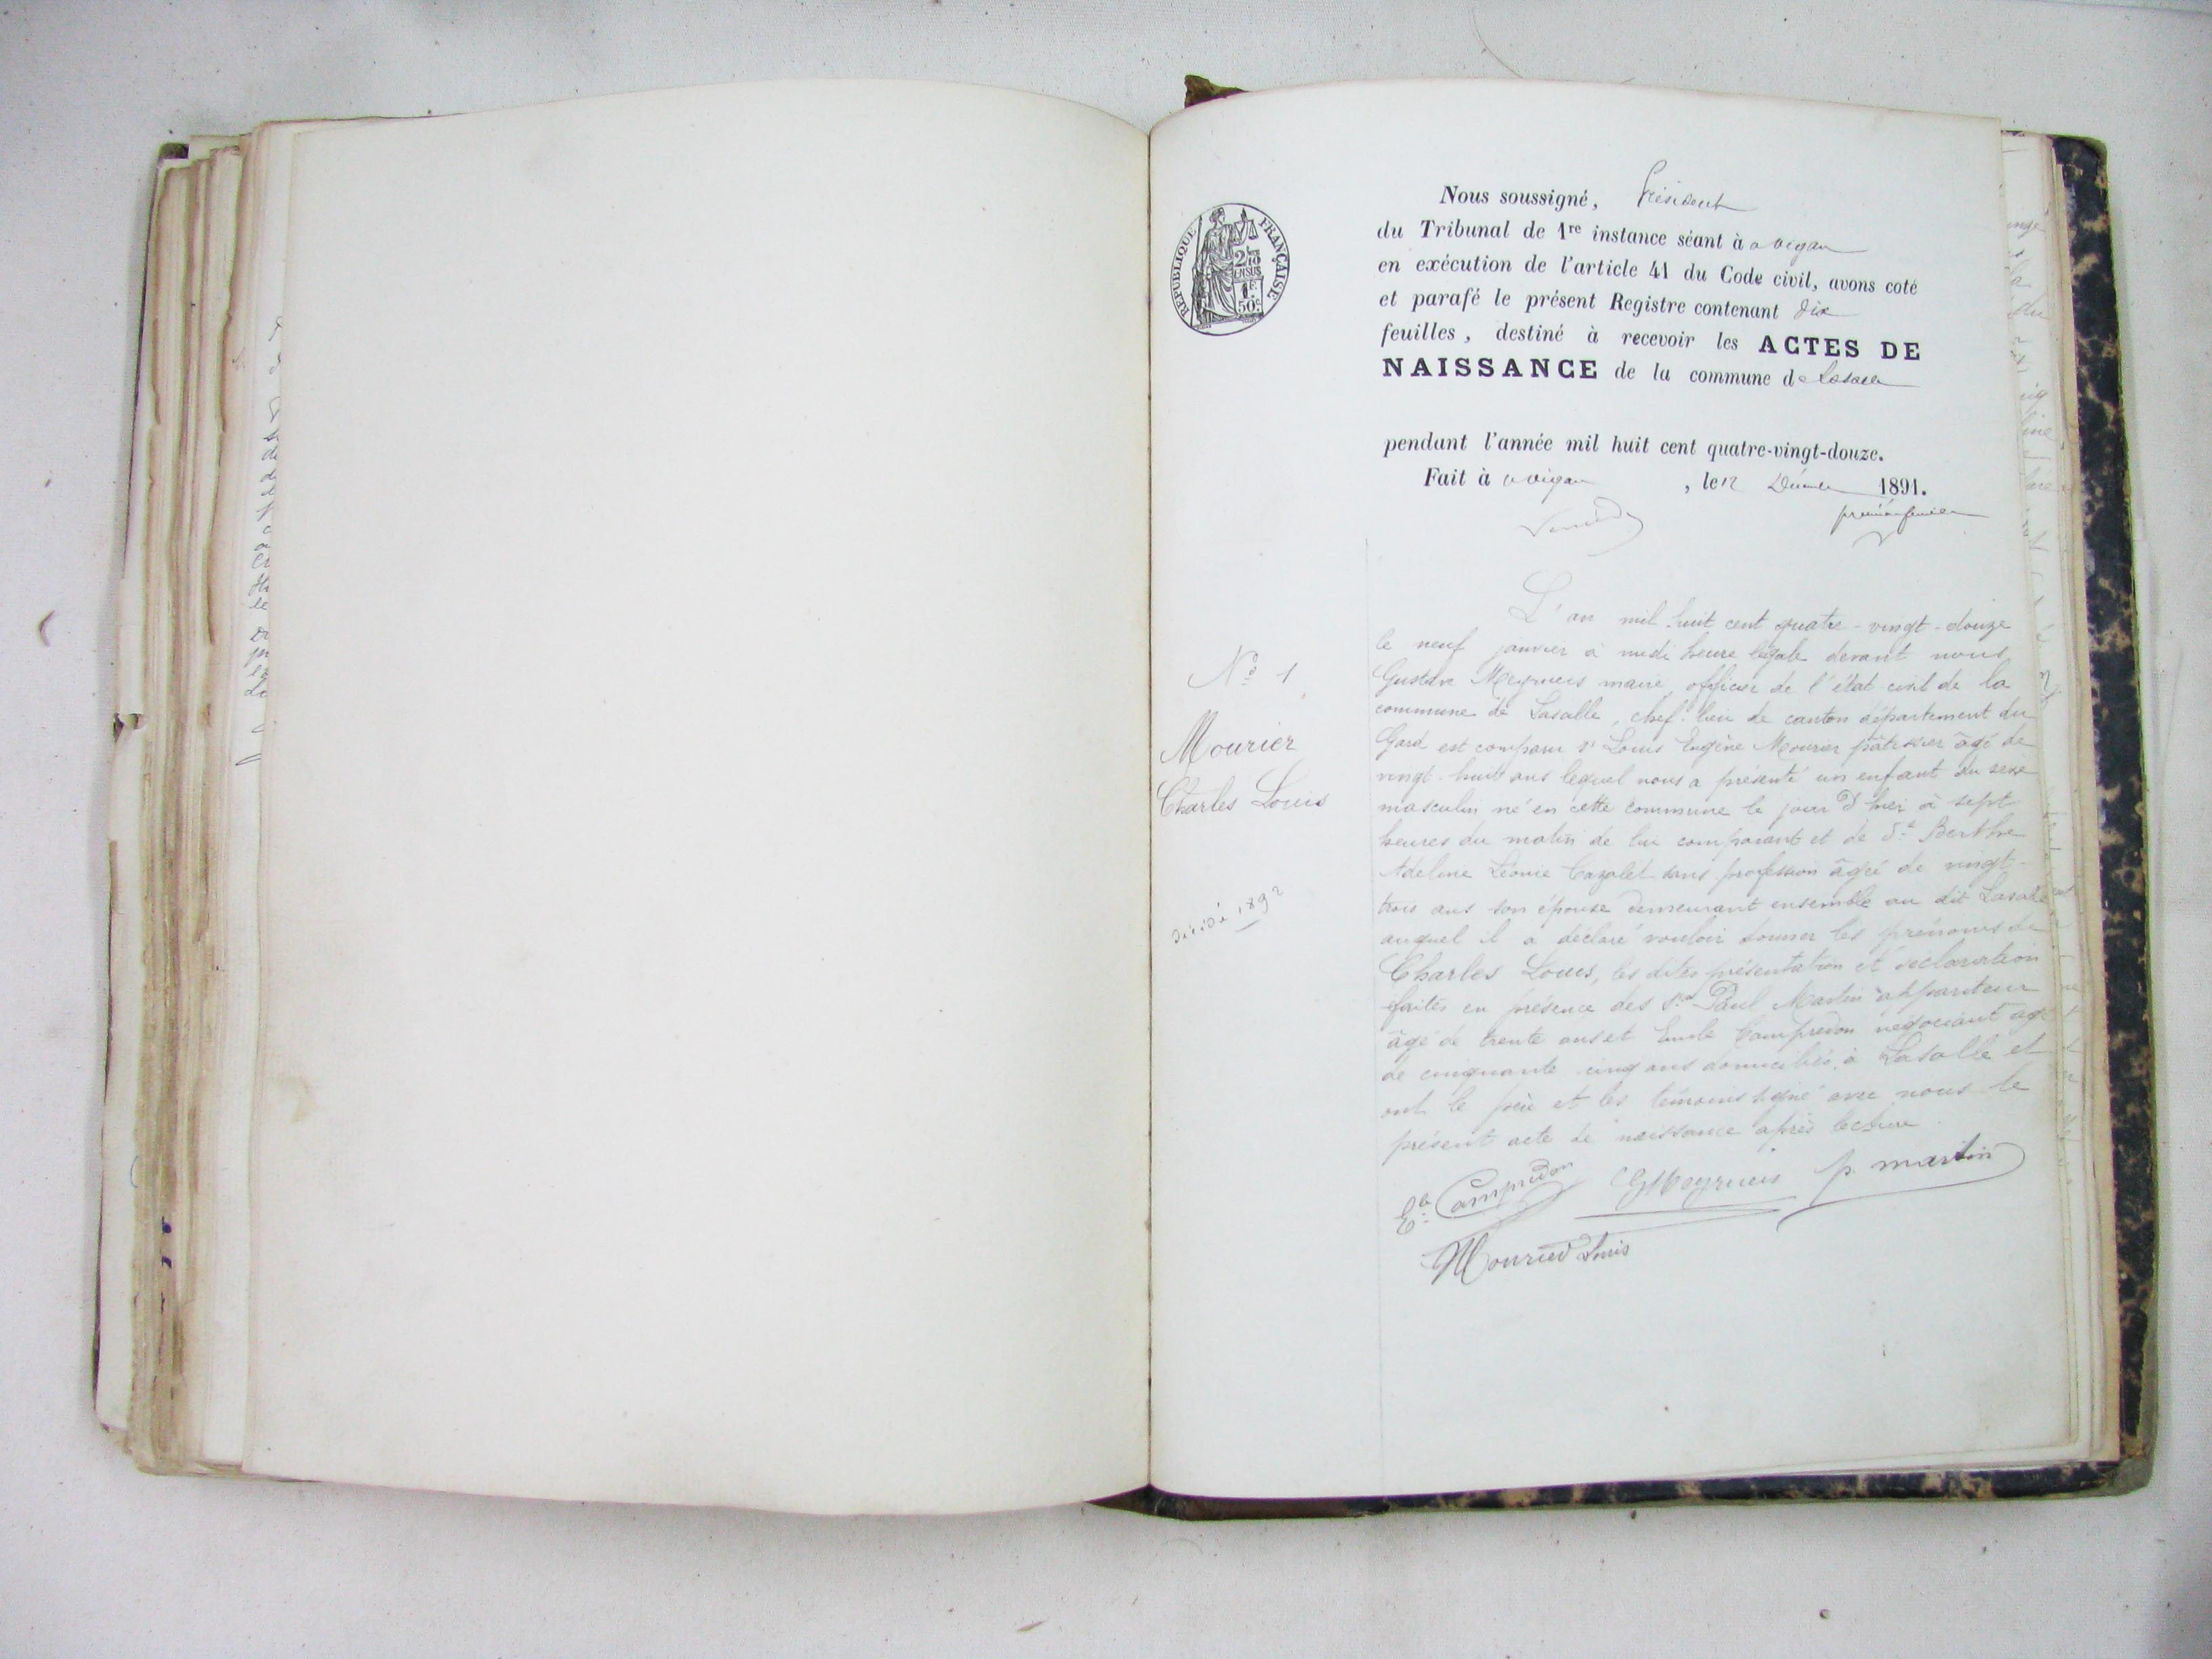 RÉPUBLIQUE FRANÇAISE
2/10
EN SUS
1F
50c
Nous soussigné, Président
du Tribunal de 1re instance séant à
en exécution de l'article 41 du Code civil, avons coté
et parafé le présent Registre contenant dix
feuilles, destiné à recevoir les ACTES DE
NAISSANCE de la commune de Lasalle
pendant l'année mil huit cent quatre-vingt-douze.
Fait à vigan, le 12 Décembre 1891.
N° 1
Mourier
Charles Louis
décédé 1892
L'an mil huit cent quatre-vingt-douze
le neuf janvier à midi heure légale devant nous
Gustave Meyrueis maire, officier de l'état civil de la
commune de Lasalle, chef-lieu de canton département du
Gard est comparu sr Louis Eugène Mourier pâtissier âgé de
vingt-huit ans lequel nous a présenté un enfant du sexe
masculin né en cette commune le jour d'hier à sept
heures du matin de lui comparant et de de Berthe
Adeline Léonie Cazalet sans profession âgée de vingt-
trois ans son épouse demeurant ensemble au dit Lasalle
auquel il a déclaré vouloir donner les prénoms de
Charles Louis, les dites présentation et déclaration
faites en présence des srs Paul Martin appariteur
âgé de trente ans et Emile Campredon négociant âgé
de cinquante cinq ans domiciliés à Lasalle et
ont le père et les témoins signé avec nous le
présent acte de naissance après lecture.
Ele Campredon G Meyrueis p. martin
Mourier Louis